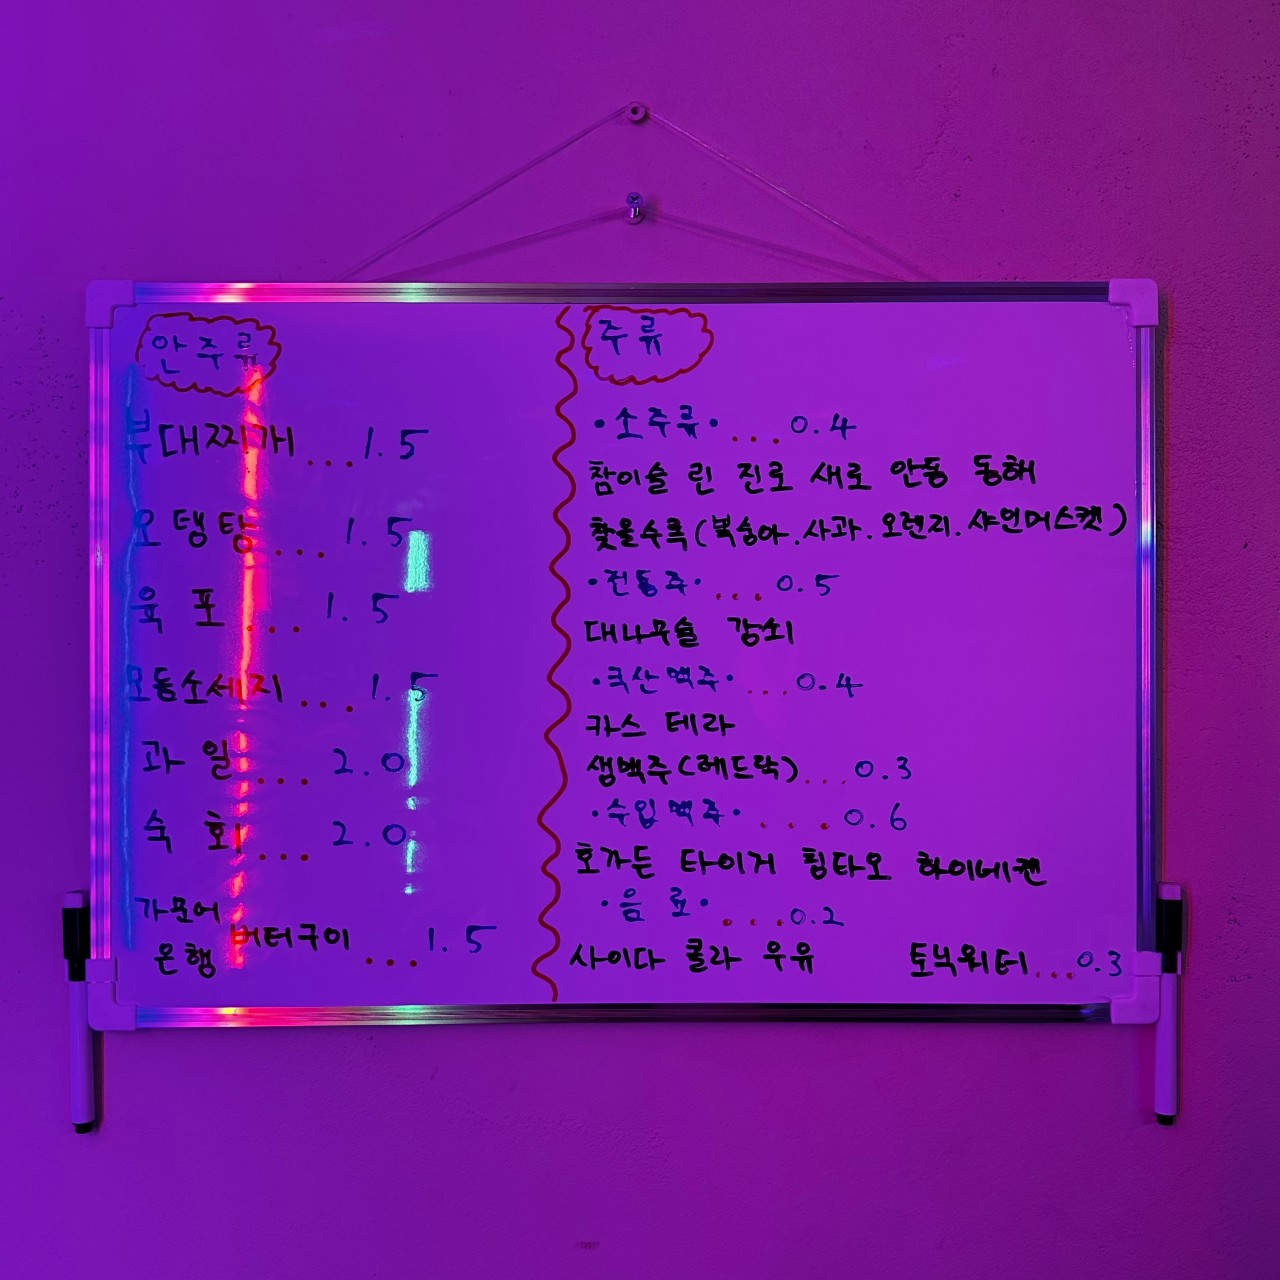 안주류
부대찌개 ... 1.5
오뎅탕 ... 1.5
육포 ... 1.5
모둠소세지 ... 1.5
과일 ... 2.0
숙회 ... 2.0
가문어
은행 버터구이 ... 1.5
주류
·소주류· ... 0.4
참이슬 린 진로 새로 안동 동해
좋을수록(복숭아.사과.오렌지.샤인머스켓)
·전통주· ... 0.5
대나무술 강쇠
·국산맥주· ... 0.4
카스 테라
생맥주(레드락) ... 0.3
·수입맥주· .... 0.6
호가든 타이거 칭타오 하이네켄
·음료· .... 0.2
사이다 콜라 우유 토닉워터 ... 0.3